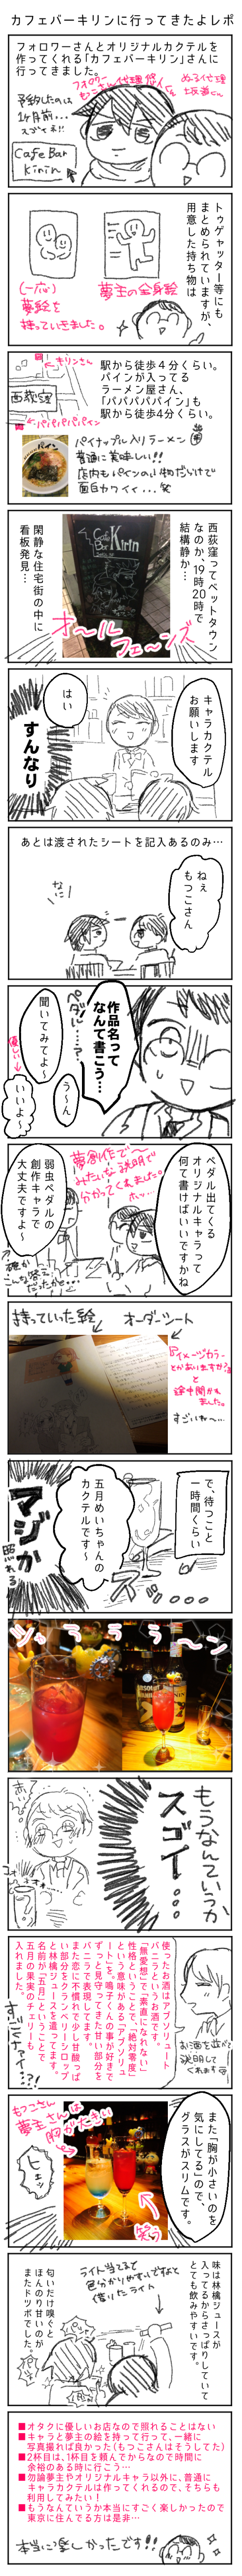 カフェバーキリンに行ってきたよレポ
フォロワーさんとオリジナルカクテルを
作ってくれる「カフェバーキリン」さんに
行ってきました。
フォロワー
もつこさん代理 悠人くん
ぬーる代理
坂道くん
予約したのは
1ヶ月前…
スゴイネ!!
Cafe Bar
Kirin
トゥギャッター等にも
まとめられていますが、
用意した持ち物は
(一応)
夢絵を
持っていきました。
夢主の全身絵
駅から徒歩4分くらい。
パインが入ってる
ラーメン屋さん、
「パパパパパイン」も
駅から徒歩4分くらい。
キリンさん
西荻窪
パパパパパイン
パイナップル入りラーメン
普通に美味しい!!
店内もパインの小物だらけで
面白カワイイ…
西荻窪ってベットタウン
なのか、19時20時で
結構静か…
Cafe
Bar Kirin
閑静な住宅街の中に
看板発見…
オールフェーンズ
キャラカクテル
お願いします
はい
すんなり
あとは渡されたシートを記入あるのみ…
ねぇ
もつこさん
なに!
作品名って
なんて書こう…
ペダル…?
う~ん
聞いてみてよ~
優しい
いいよ~
ペダル出てくる
オリジナルキャラって
何て書けばいいですかね
夢創作で~
みたいな説明で
分かってくれました。
ホッ…
弱虫ペダルの
創作キャラで
大丈夫ですよ~
確か
こんな答え
だったかと…
持っていた絵
オーダーシート
『イメージカラー
とかありますか?』
と
途中聞かれ
ました。
すごいね~…
で、待つこと
一時間くらい
五月めいちゃんの
カクテルです~
マジか
照れる
ズ……
ツヤうぅぅ~ン
もうなんていうか
スゴイ…
使ったお酒はアブソリュート
バニラというお酒です。
「無愛想」で「素直になれない」
性格ということで、「絶対零度」
という意味がある「アブソリュ
ート」を。鳴子くんの事が好きで
ずっと見守ってきた甘い部分を
バニラで表現してます。
また恋に不慣れで少し甘酸っぱ
い部分をクランベリーシロップ
と林檎ジュースを遣ってます。
名前が「五月」ということで、
五月の果実のチェリーも
入れました。
お酒を並べて
説明して
くれます
すごくナァイ!!
また「胸が小さいのを
気にしてる」ので、
グラスがスリムです。
もつこさんの
夢主さんは
胸がたいらい
ヒェッ
笑う
味は林檎ジュースが
入ってるからさっぱりしていて
とても飲みやすいです。
ライト当てると
色分かりやすいですねと
借りたライト
匂いだけ嗅ぐと
ほんのり甘いのが
またドツボでした。
■オタクに優しいお店なので照れることはない
■キャラと夢主の絵を持って行って、一緒に
写真撮れば良かった(もつこさんはそうしてた)
■2杯目は、1杯目を頼んでからなので時間に
余裕のある時に行こう…
■勿論夢主やオリジナルキャラ以外に、普通に
キャラカクテルは作ってくれるので、そちらも
利用してみたい!
■もうなんていうか本当にすごく楽しかったので
東京に住んでる方は是非…
本当に楽しかったです!!